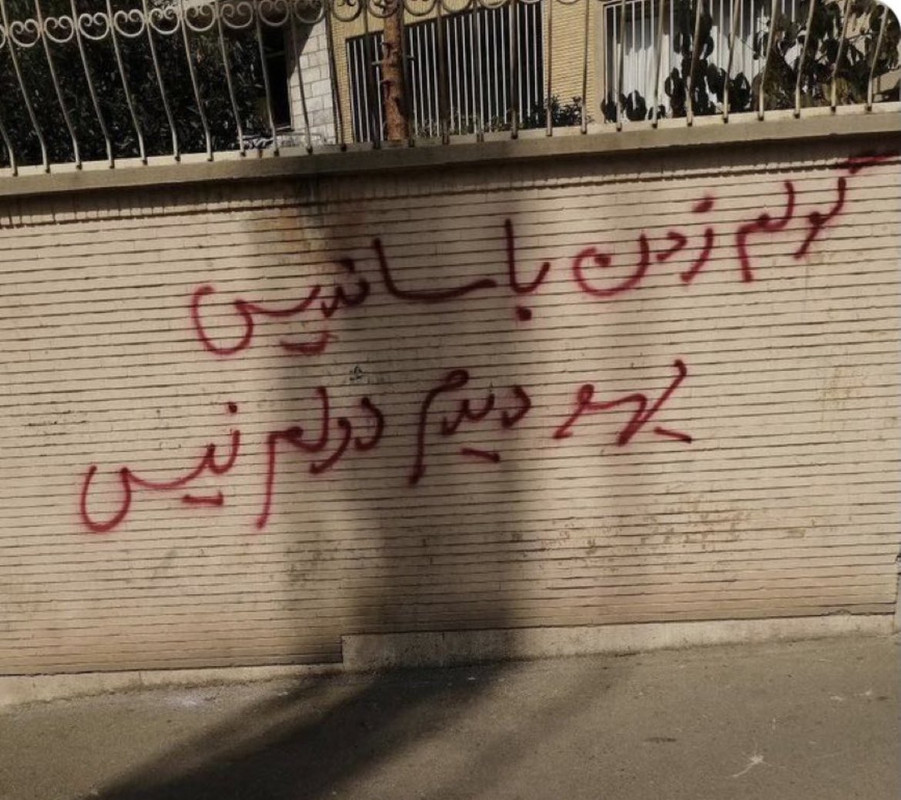 گولم زدن با ساندیس
یهو دیدم دولم نیس